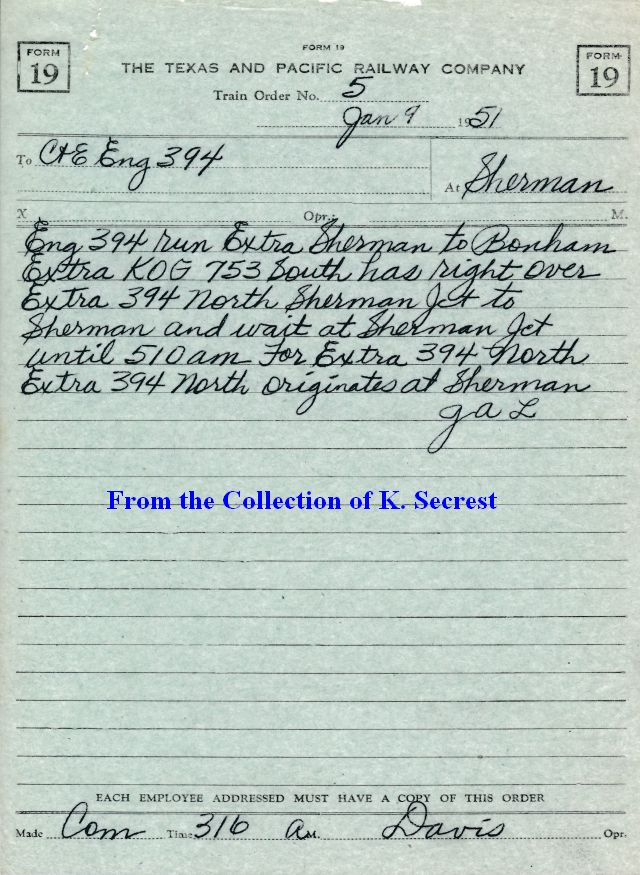 FORM 19
FORM 19
FORM 19
THE TEXAS AND PACIFIC RAILWAY COMPANY
Train Order No. 5
Jan 9 1951
To C&E Eng 394
At Sherman
X Opr.; M.
Eng 394 run Extra Sherman to Bonham
Extra KOG 753 South has right over
Extra 394 North Sherman Jct to
Sherman and wait at Sherman Jct
until 510 am For Extra 394 North
Extra 394 North originates at Sherman
J A L
From the Collection of K. Secrest
EACH EMPLOYEE ADDRESSED MUST HAVE A COPY OF THIS ORDER
Made Com Time 316 A M. Davis Opr.